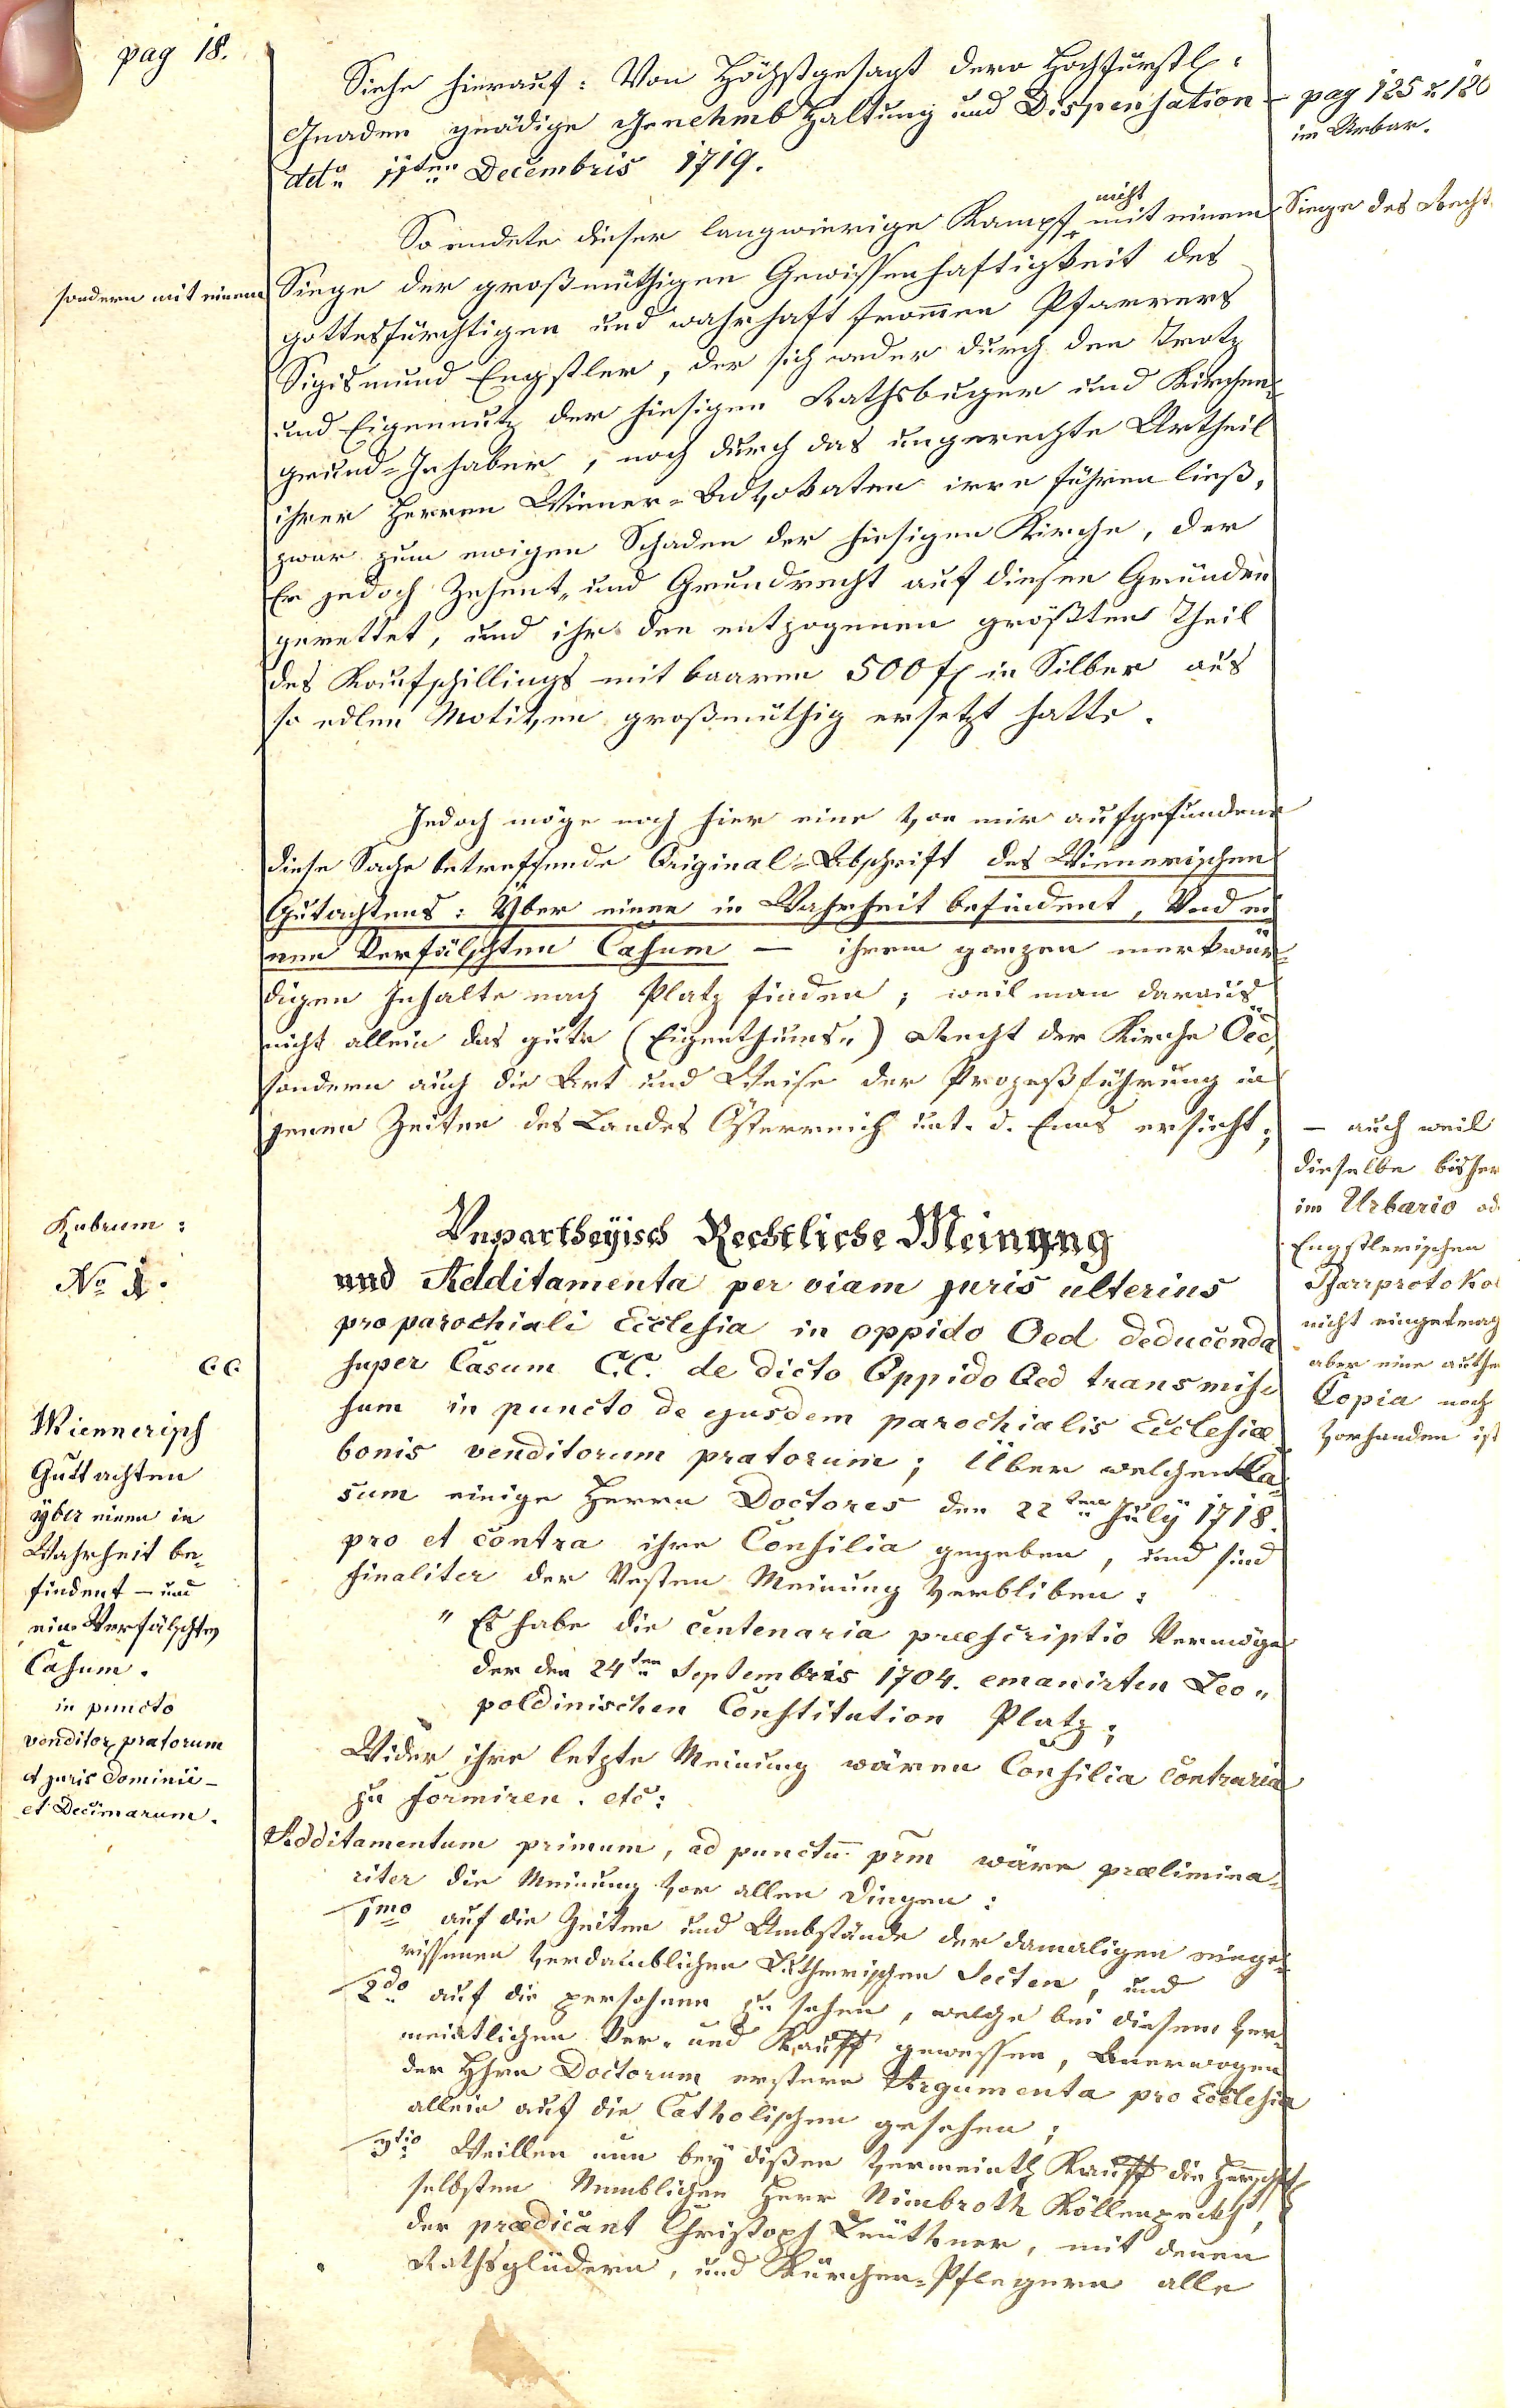 pag 18.
Siehe hierauf: Von Höchstgesagt dero Hochfürstl:
Gnaden gnädige Genehmb Haltung und Dispensation
dető 11ten Decembris 1719.
pag 125 u 126
im Urbar.
So endete dieser langwierige Kampf nicht mit einem
Siege des Rechts
sondern mit einem
Siege der großmüthigen Gewissenhaftigkeit des
gottesfürchtigen und wahrhaft from̄en Pfarrers
Sigismund Engstler, der sich weder durch den Trotz
und Eigennutz der hiesigen Rathsbuger und Kirchen=
grund=Inhaber, noch durch das ungerechte Urtheil
ihrer Herren Wiener=Advokaten irre führen ließ,
zwar zum ewigen Schaden der hiesigen Kirche, der
Er jedoch Zehent„ und Grundrecht auf diesen Gründen
gerettet, und ihr den entzogenen größten Theil
des Kaufschillings mit baaren 500 fl in Silber aus
so edlen Motiven großmüthig ersetzt hatte.
Jedoch möge noch hier eine von mir aufgefundene
diese Sache betreffende Original=Abschrift des Wienerischen
Gutachtens: Yber einen in Wahrheit befindent, Und ei
nen Verfälschten Casum — ihrem ganzen merkwür=
digen Inhalte nach Platz finden; weil man daraus
nicht allein das gute (Eigenthums„) Recht der Kirche Öed,
sondern auch die Art und Weise der Prozeßführung in
jenen Zeiten des Landes Österreich unt. d. Enns ersieht;
— auch weil
dieselbe bisher
im Urbario od.
Engstlerischen
Pfarrprotokol
nicht eingetrag
aber eine authe
Copia noch
vorhanden ist
Rubrum:
No 1.
C. C.
Wiennerisch
Guttachten
yber einen in
Wahrheit be„
findent — und
ein Verfälschten
Casum.
in puncto
venditor. pratorum
et juris Dominii —
et Decimarum.
Unpartheyisch Rechtliche Meinung
und Additamenta per viam juris ulterius
pro parochiali Ecclesia in oppido Oed deducenda
super Casum C.C. de dicto Oppido Oed transmis=
sum in puncto de ejusdem parochialis Ecclesiæ
bonis venditorum pratorum; Über welchen Ca=
sum einige Herren Doctores den 22ten July 1718.
pro et contra ihre Consilia gegeben, und sind
finaliter der Vesten Meinung verbliben:
" Es habe die centenaria præscriptio Vermöge
der den 24ten Septembris 1704. emanirten Leo„
poldinischen Constitution Platz;
Wider ihre letzte Meinung wären Consilia Contraria
zu formiren. etc:
Additamentum primum, ad punctū prm̄ wäre prælimina=
riter die Meinung vor allen Dingen:
1mo auf die Zeiten und Umbstände der damaligen einge=
rissenen verdamblichen Lutherischen Secten, und
2do auf die persohnen zu sehen, welche bei diesem ver=
meintlichen Ver„ und Kauff gewessen, Anerwogen
der Hhrn Doctorum erstere Argumenta pro Ecclesia
allein auf die Catholischen gesehen;
3tio Weillen nun bey dißen vermeintl Kauff die Herrschft
selbsten Nemblichen Herr Nimbroth Köllenpeckh,
der prædicant Christoph Leuthner, mit denen
Rathsglüdern, und Kürchen=Pflegern alle